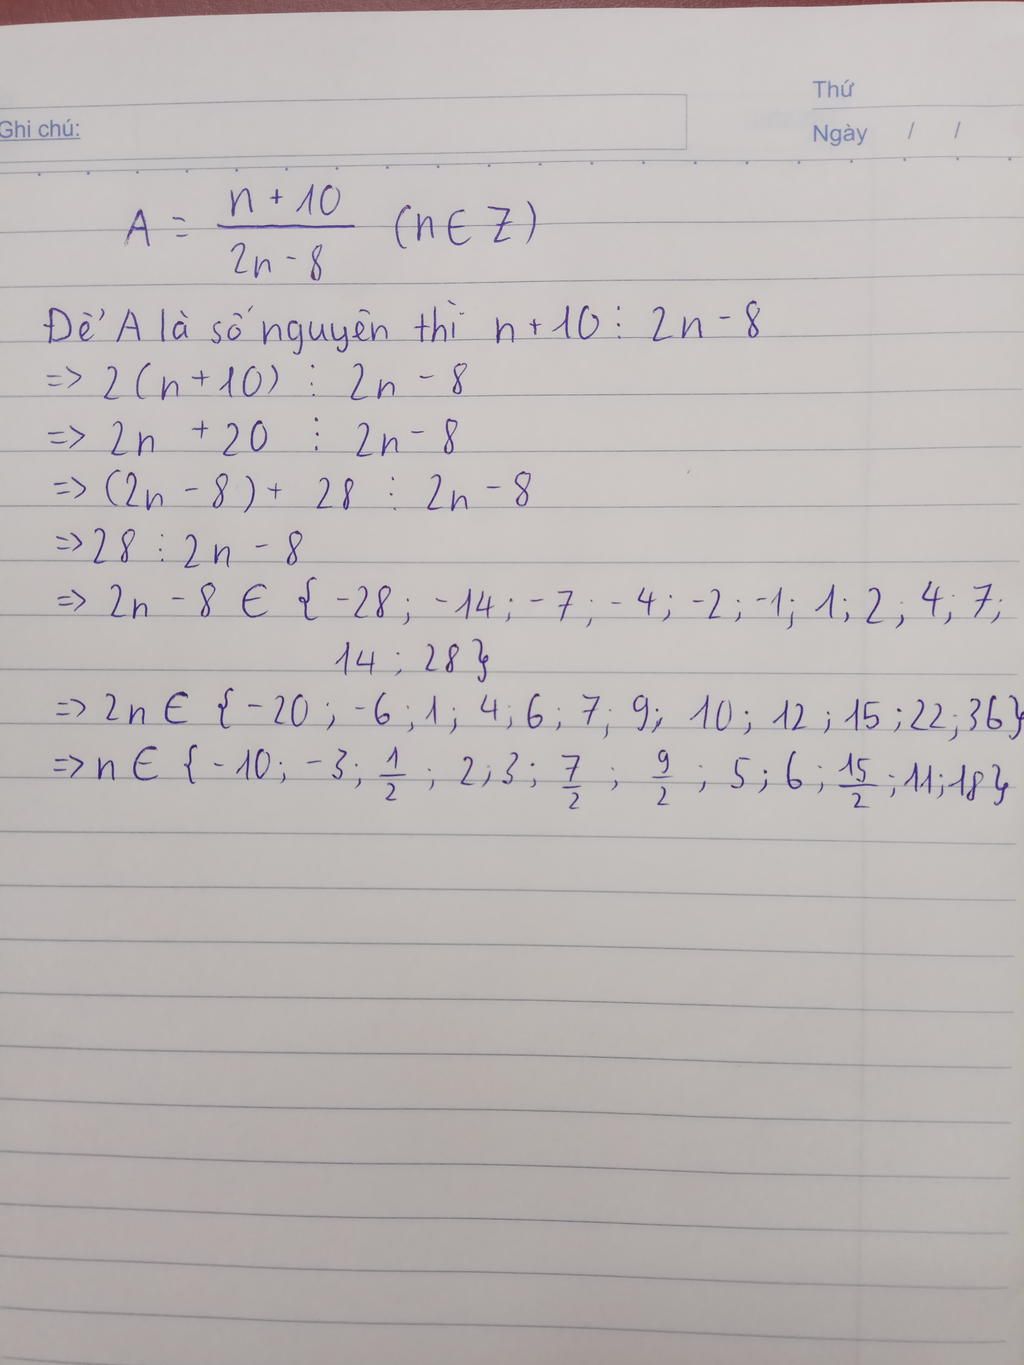 Thứ
Ghi chú:
Ngày / /
A = \frac{n + 10}{2n - 8} (n ∈ Z)
Để A là số nguyên thì n + 10 ⋮ 2n - 8
=> 2(n + 10) ⋮ 2n - 8
=> 2n + 20 ⋮ 2n - 8
=> (2n - 8) + 28 ⋮ 2n - 8
=> 28 ⋮ 2n - 8
=> 2n - 8 ∈ { -28; -14; -7; -4; -2; -1; 1; 2; 4; 7;
14; 28}
=> 2n ∈ { -20; -6; 1; 4; 6; 7; 9; 10; 12; 15; 22; 36}
=> n ∈ { -10; -3; \frac{1}{2}; 2; 3; \frac{7}{2}; \frac{9}{2}; 5; 6; \frac{15}{2}; 11; 18}